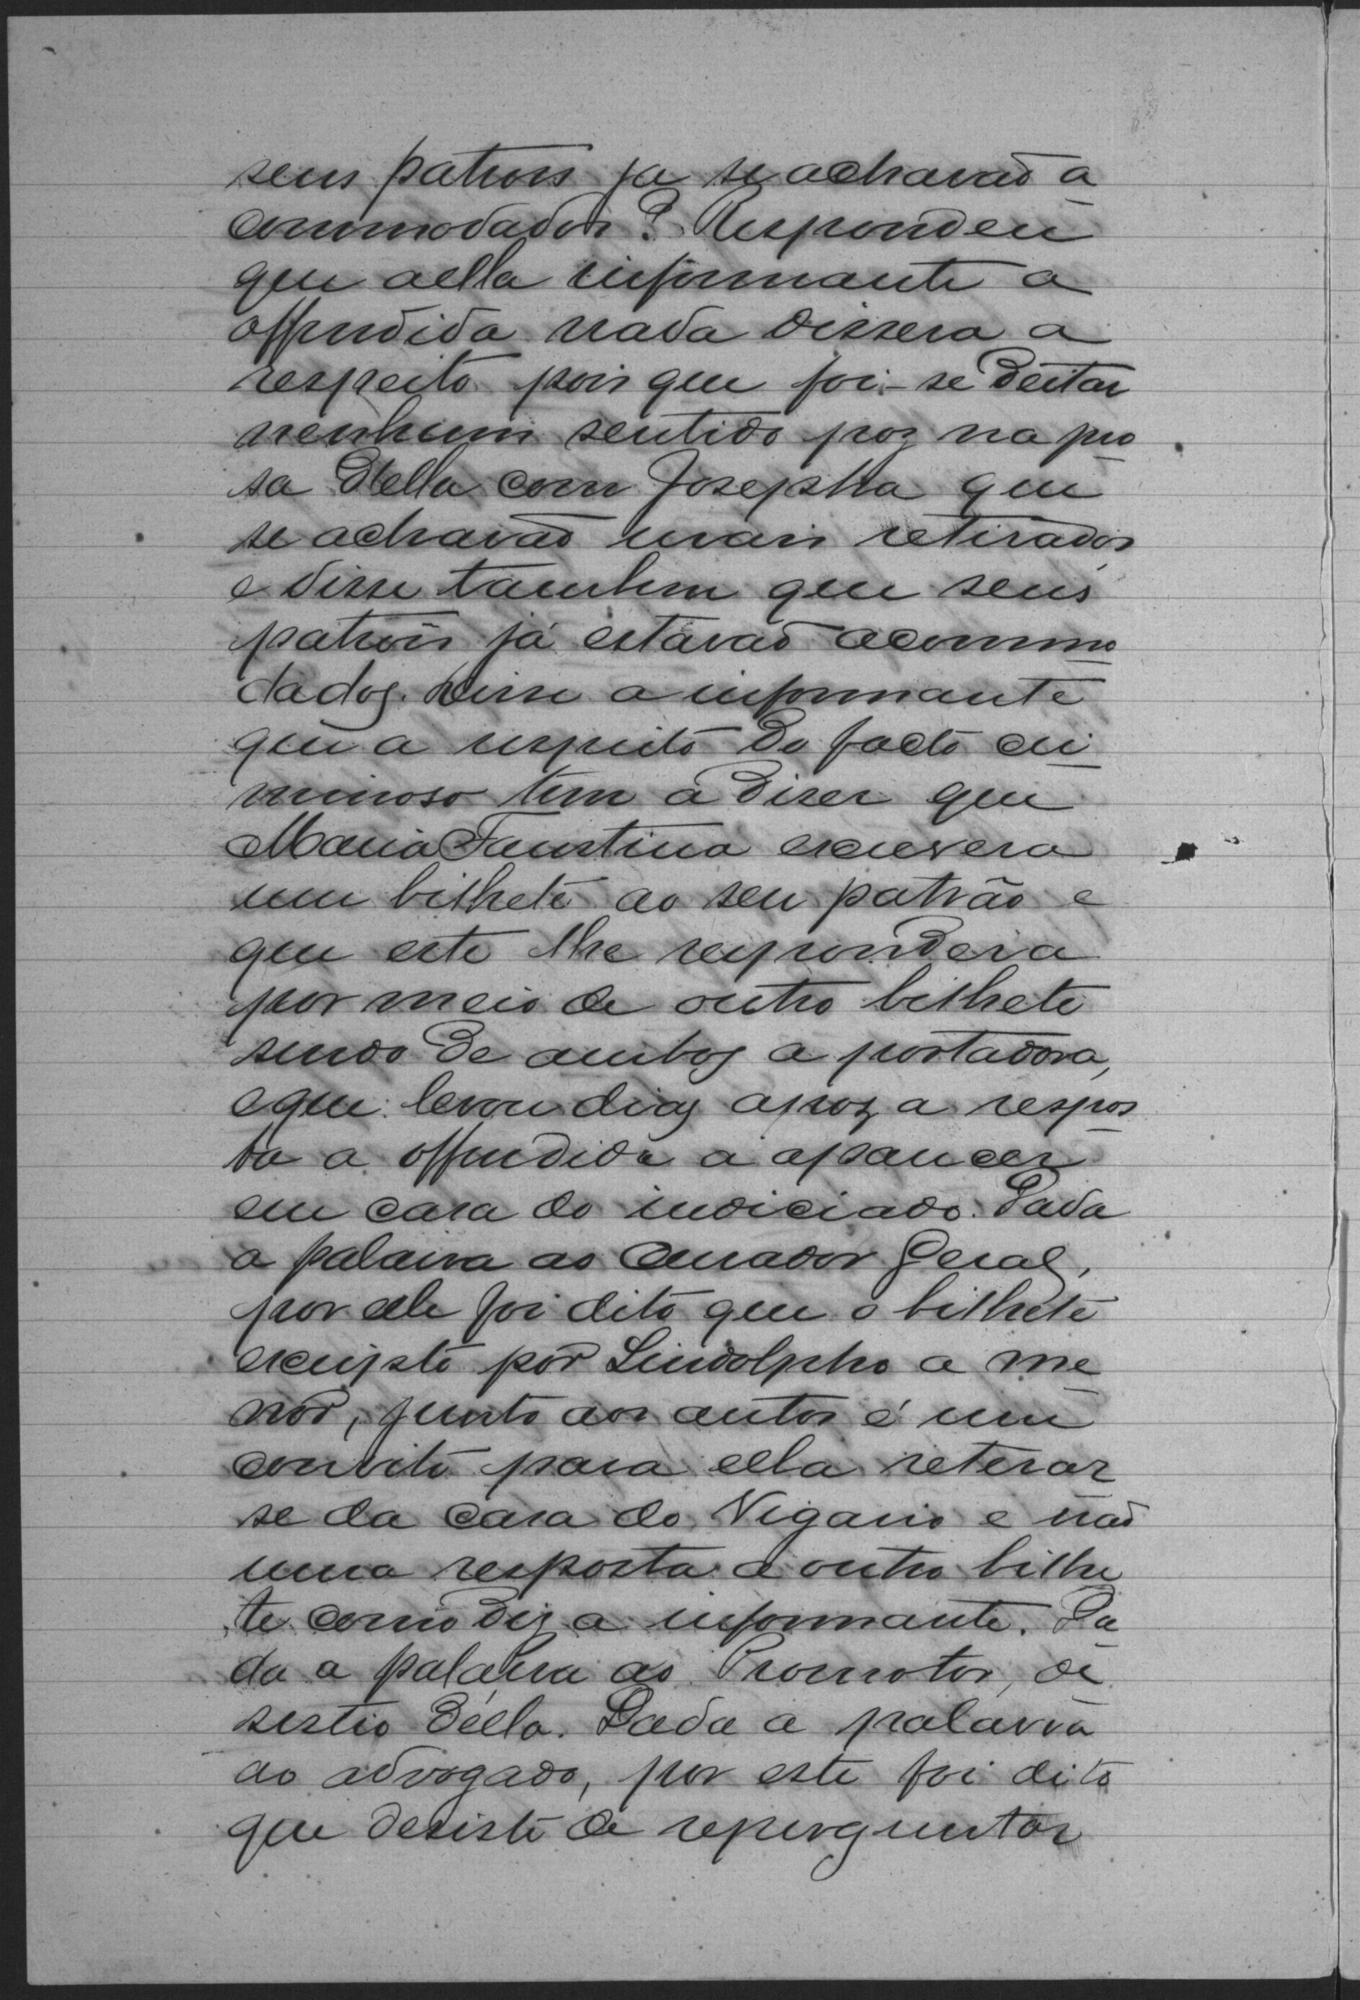 seus patrões ja se achavão a
commodados? Respondeu
que a ella informante a
offendida nada dissera a
respeito pois que foi-se deitar
nenhum sentido poz na pro
sa della com Josepha que
se achavão mais retirados
e disse tambem que seus
patrões já estavão acommo
dados. Disse a informante
que a respeito do facto cri
minoso tem a dizer que
Maria Faustina escrevera
um bilhete ao seu patrão e
que este lhe respondera
por meio de outro bilhete
sendo de ambos a portadora,
e que levou dias apoz a respos
ta a offendida a aparecer
em casa do indiciado. Dada
a palavra ao Curador Geral,
por elle foi dito que o bilhete
escripto por Lindolpho a me
nor, junto aos autos é um
convite para ella reterar
se da casa do Vigario e não
uma resposta a outro bilhe
te como diz a informante. Da
da a palavra ao Promotor, de
sestio d'ella. Dada a palavra
ao advogado, por este foi dito
que desiste de reperguntar